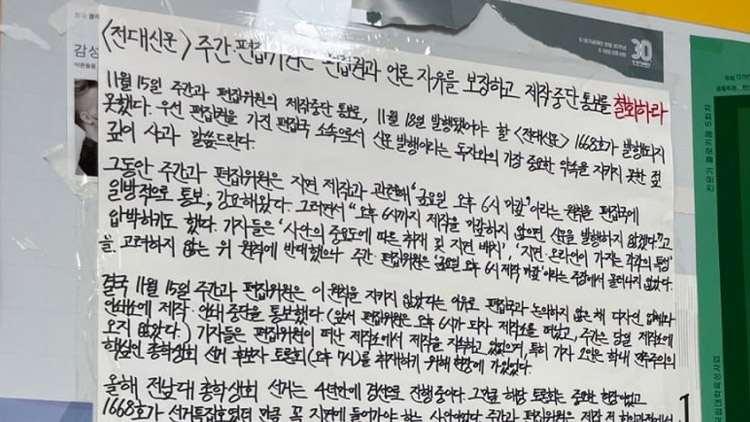 <전대신문> 주간·편집위원은 편집권과 언론 자유를 보장하고 제작중단 통보를 철회하라
11월 15일 주간과 편집위원의 제작중단 통보로, 11월 18일 발행됐어야 할 <전대신문> 1668호가 발행되지
못했다. 우선 편집권을 가진 편집국 소속으로서 신문 발행이라는 독자와의 가장 중요한 약속을 지키지 못한 점
깊이 사과 말씀드린다.
그동안 주간과 편집위원은 지면 제작과 관련해 '금요일 오후 6시 마감'이라는 원칙을 편집국에
일방적으로 통보, 강요해왔다. 그러면서 "오후 6시까지 제작을 마감하지 않으면 신문을 발행하지 않겠다"고
압박하기도 했다. 기자들은 '사안의 중요도에 따른 취재 및 지면 배치', '지면·온라인이 가지는 각각의 특성'
을 고려하지 않는 위 원칙에 반대했으나 주간·편집위원은 '금요일 오후 6시 제작 마감'이라는 주장에서 물러나지 않았다.
결국 11월 15일 주간과 편집위원은 이 원칙을 지키지 않았다는 이유로 편집국과 논의하지 않은 채 디자인 업체와
인쇄소에 제작·인쇄 중단을 통보했다. (앞서 편집위원은 오후 6시가 되자 제작소를 떠났고, 주간은 당일 제작소에
오지 않았다.) 기자들은 편집위원이 떠난 제작소에서 제작을 지속하고 있었으며, 특히 기자 2인은 학내 민주주의의
핵심인 총학생회 선거 후보자 토론회(오후 7시)를 취재하기 위해 현장에 가있었다.
올해 전남대 총학생회 선거는 4년만에 경선으로 진행 중이다. 그만큼 해당 토론회는 중요한 현장이었고
1668호가 선거특집호였던 만큼 꼭 지면에 들어가야 하는 사안이었다. 주간과 편집위원은 제작 전 회의과정에서
감성
30
1